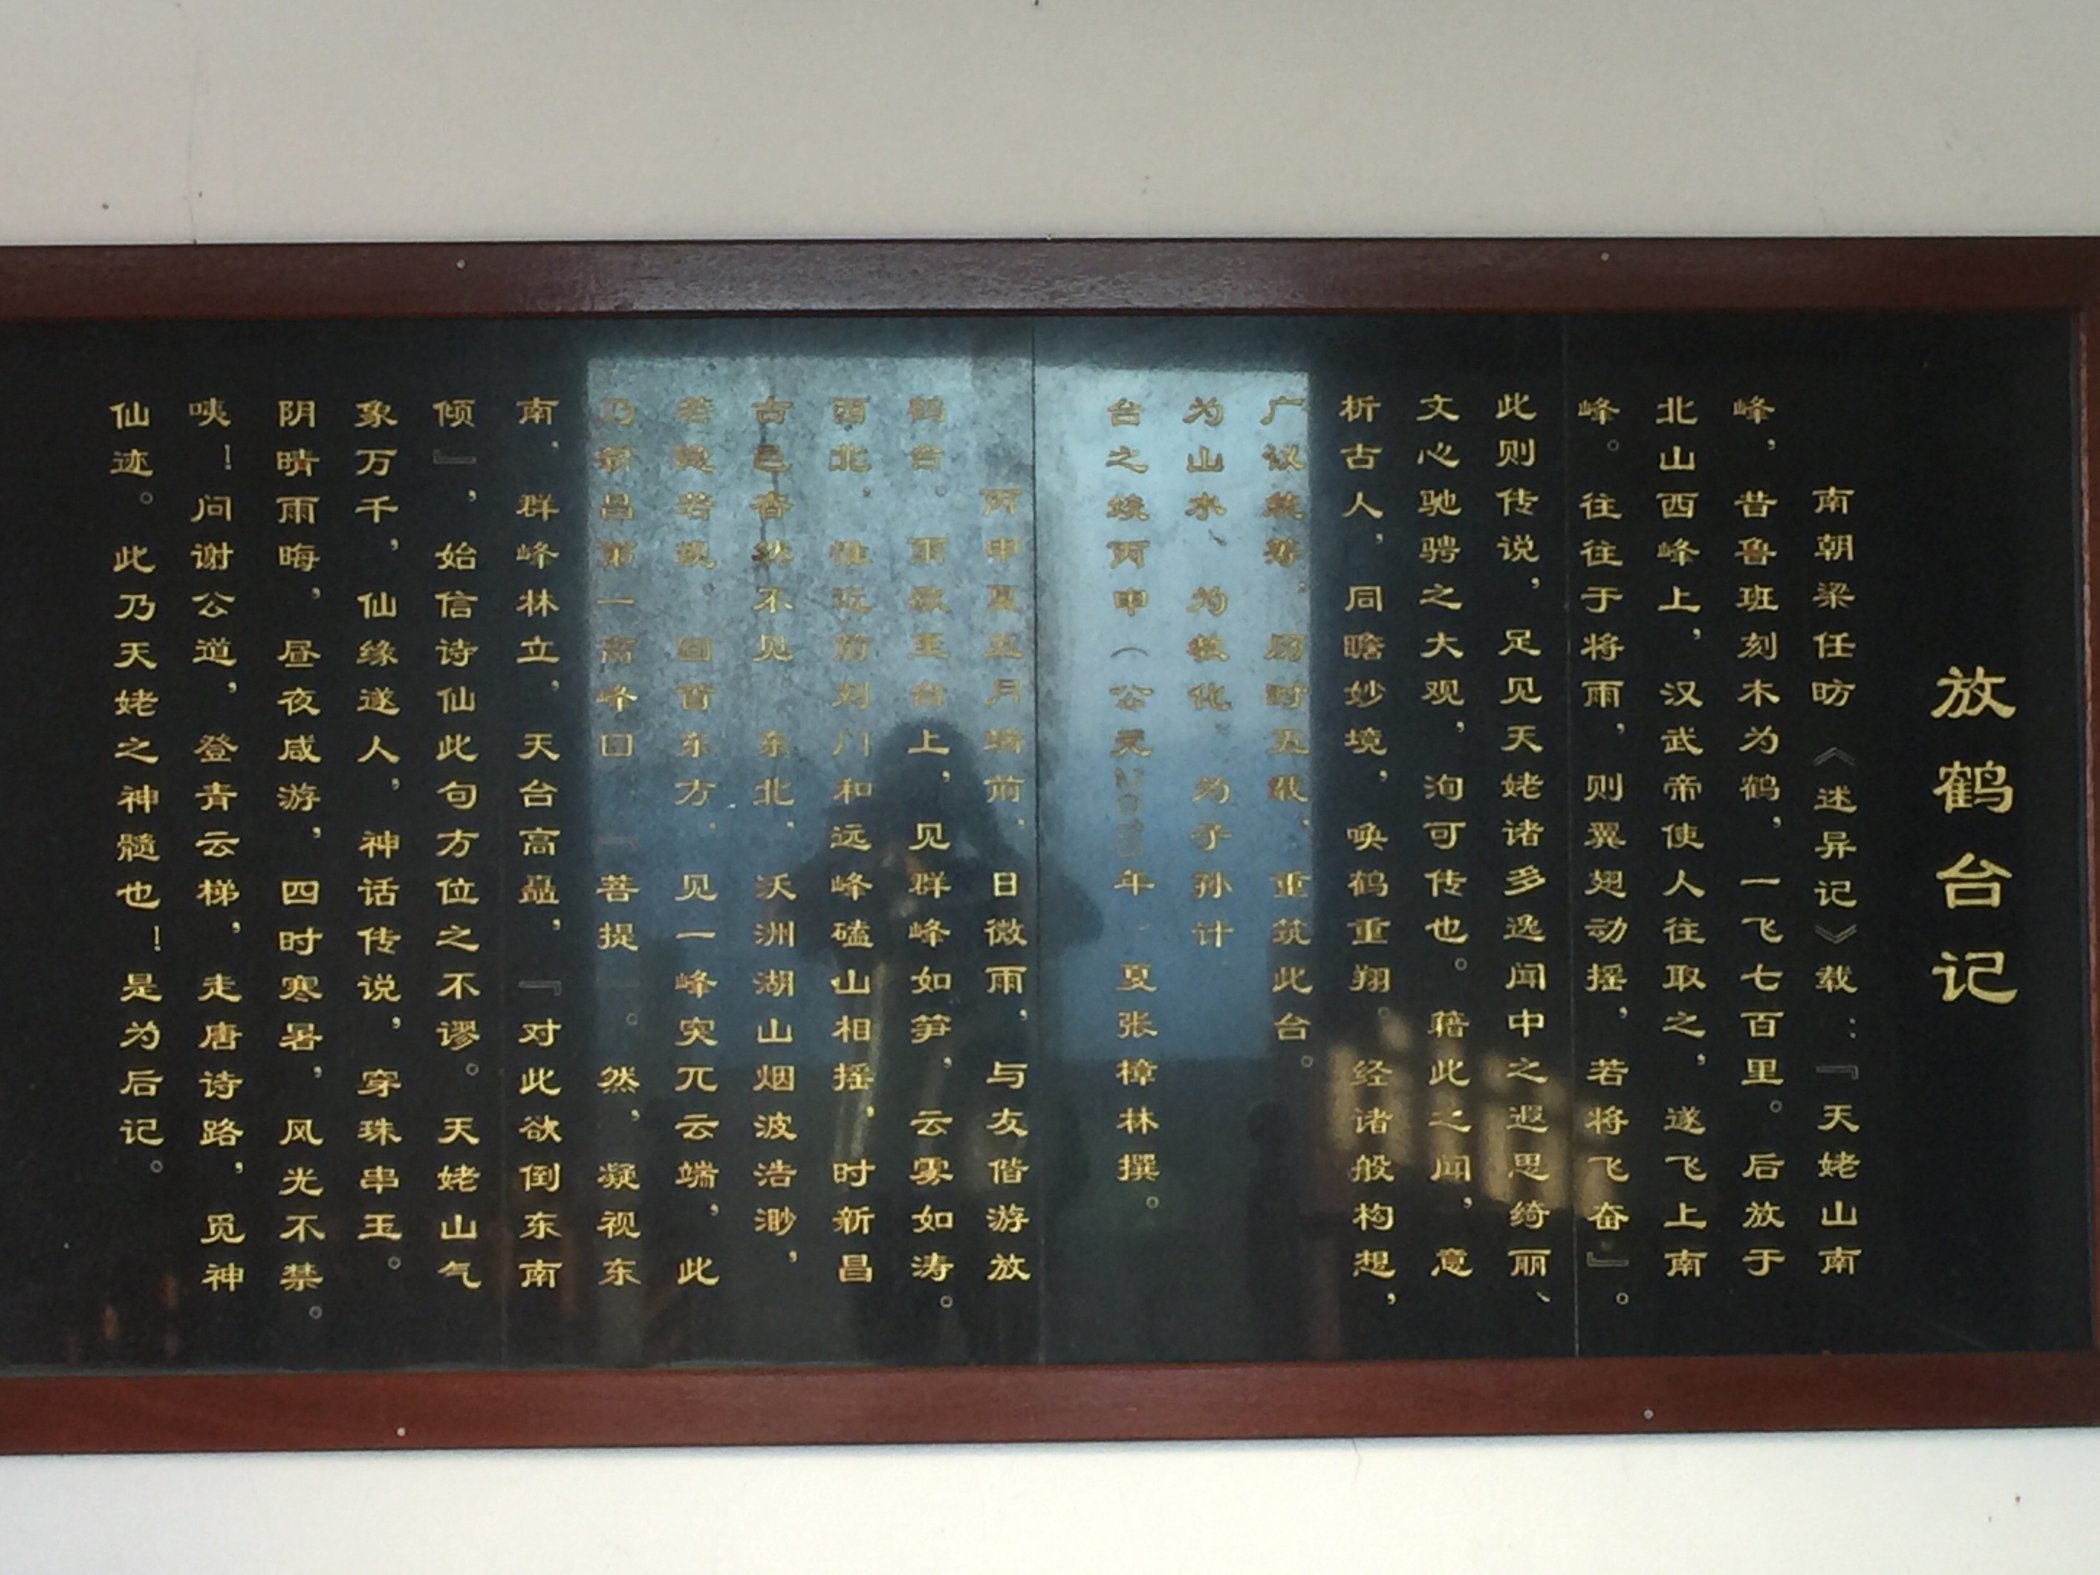 放鹤台记
南朝梁任昉《述异记》载：『天姥山南
峰，昔鲁班刻木为鹤，一飞七百里。后放于
北山西峰上，汉武帝使人往取之，遂飞上南
峰。往往于将雨，则翼翅动摇，若将飞奋』。
此则传说，足见天姥诸多逸闻中之遐思绮丽、
文心驰骋之大观，洵可传也。藉此之闻，意
析古人，同瞻妙境，唤鹤重翔。经诸般构想，
广议筹，历时五载，重筑此台。
为山水、为教化、为子孙计
台之丙申（公元2016年）夏张樟林撰。
丙申夏五月晦前，日微雨，与友偕游放
鹤台。雨歇至台上，见群峰如笋，云雾如涛。
西北，惟近前刘门和远峰磕山相摇，时新昌
古邑杳然不见。东北，沃洲湖山烟波浩渺，
若隐若现。回首东方，见一峰突兀云端，此
乃新昌第一高峰曰『菩提』。然，凝视东
南，群峰林立，天台高矗，『对此欲倒东南
倾』，始信诗仙此句方位之不谬。天姥山气
象万千，仙缘遂人，神话传说，穿珠串玉。
阴晴雨晦，昼夜咸游，四时寒暑，风光不禁。
咦！问谢公道，登青云梯，走唐诗路，觅神
仙迹。此乃天姥之神髓也！是为后记。